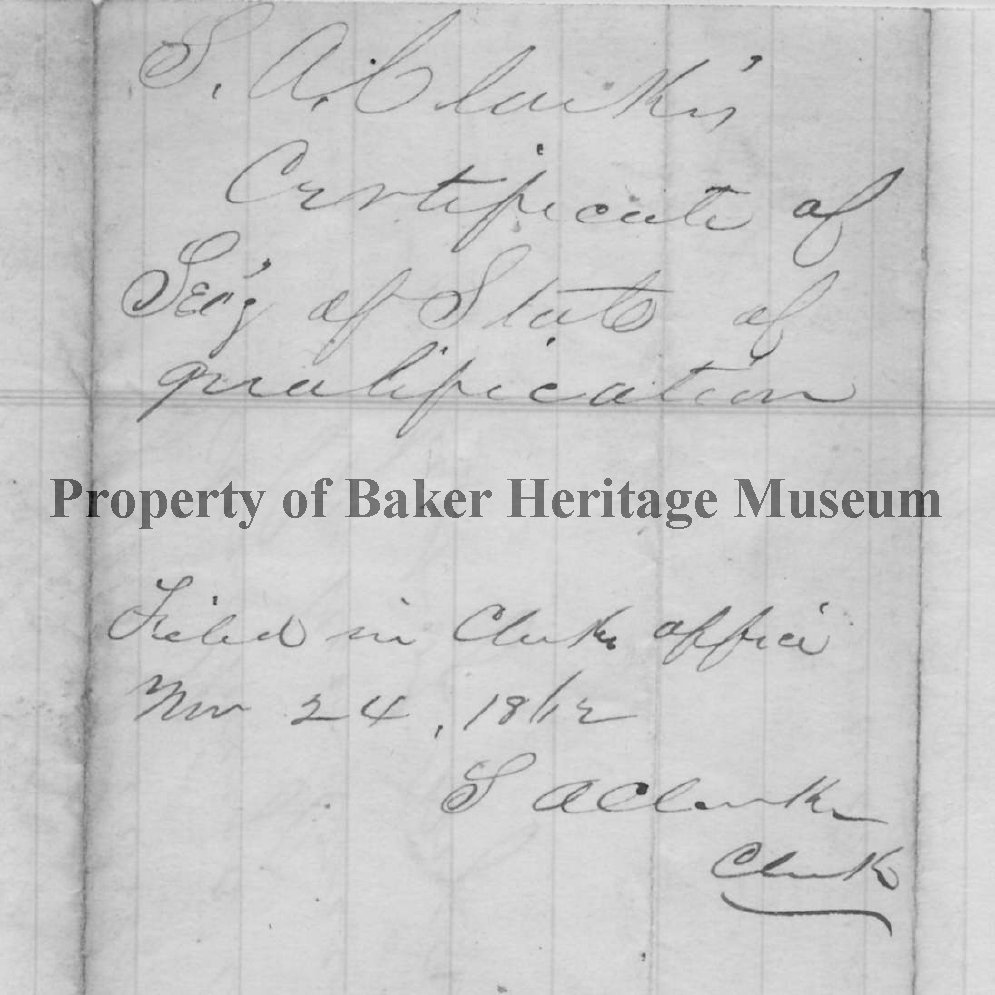 S. A. Clarke's
Certificate of
Sec'y of State of
qualification
Property of Baker Heritage Museum
Filed in Clerks office
Nov 24, 1862
S A Clarke
Clerk